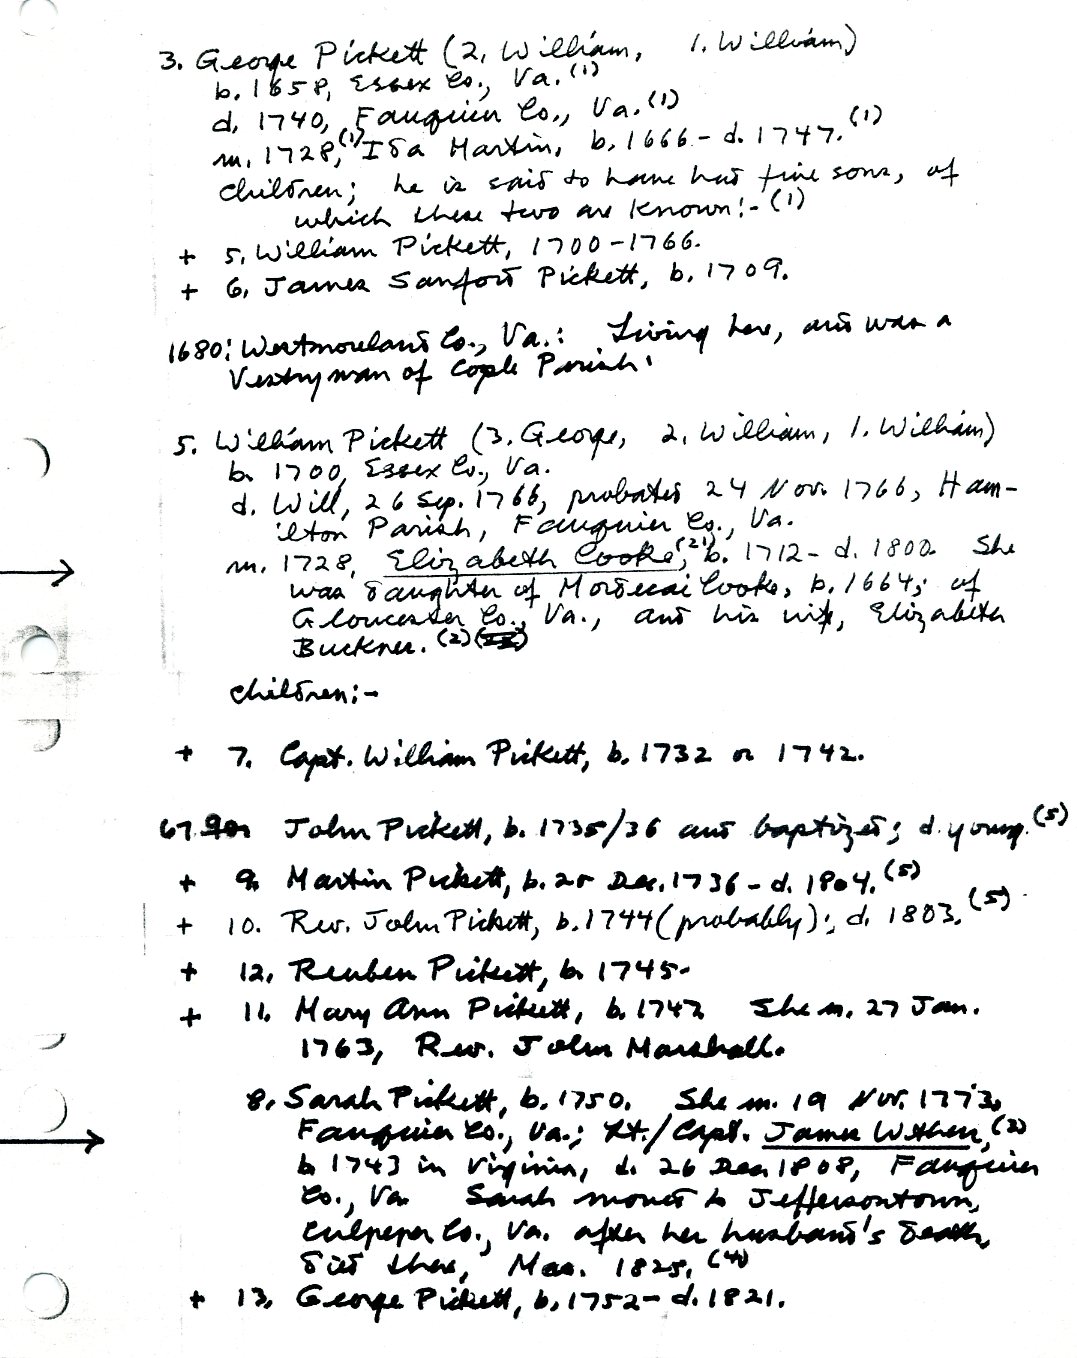 3. George Pickett (2. William, 1. William)
b. 1658, Essex Co., Va.(1)
d. 1740, Fauquier Co., Va.(1)
m. 1728,(1) Ida Martin, b. 1666 - d. 1747.(1)
children; he is said to have had five sons, of
which these two are known:- (1)
+ 5. William Pickett, 1700-1766.
+ 6. James Sanford Pickett, b. 1709.
1680: Westmoreland Co., Va.: Living here, and was a
Vestryman of Cople Parish.
5. William Pickett (3. George, 2. William, 1. William)
b. 1700, Essex Co., Va.
d. Will, 26 Sep. 1766, probated 24 Nov. 1766, Ham-
ilton Parish, Fauquier Co., Va.
m. 1728, Elizabeth Cooke,(21) b. 1712 - d. 1800. She
was daughter of Mordecai Cooke, b. 1664; of
Gloucester Co., Va., and his wife, Elizabeth
Buckner. (2)
children:-
+ 7. Capt. William Pickett, b. 1732 or 1742.
67. John Pickett, b. 1735/36 and baptized; d. young.(5)
+ 9. Martin Pickett, b. 20 Dec. 1736 - d. 1804.(5)
+ 10. Rev. John Pickett, b. 1744 (probably); d. 1803.(5)
+ 12. Reuben Pickett, b. 1745-
+ 11. Mary Ann Pickett, b. 1747 She m. 27 Jan.
1763, Rev. John Marshall.
8. Sarah Pickett, b. 1750. She m. 19 Nov. 1773,
Fauquier Co., Va.; Lt./Capt. James Withers,(3)
b 1743 in Virginia, d. 26 Dec 1808, Fauquier
Co., Va Sarah moved to Jeffersontown,
Culpeper Co., Va. after her husband's death,
died there, Mar. 1825.(4)
+ 13. George Pickett, b. 1752 - d. 1821.